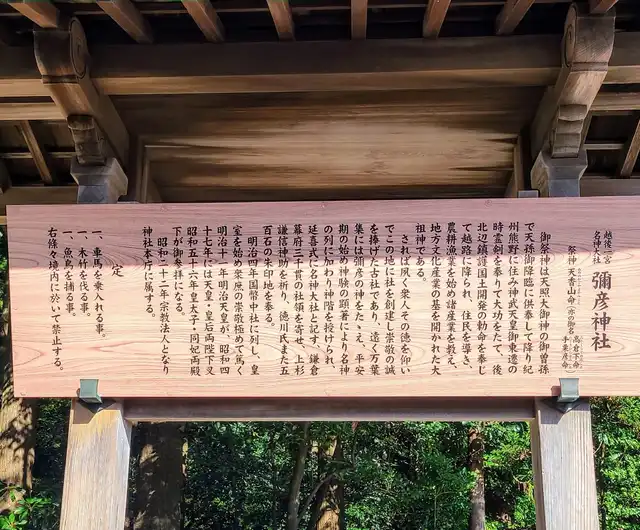 越後一宮
名神大社
彌彦神社
祭神 天香山命
亦の御名
高倉下命
手栗彦命
御祭神は天照大御神の御曽孫
で天孫御降臨に供奉して降り紀
州熊野に住み神武天皇御東遷の
時霊剣を奉りて大功をたて、後
北辺鎮護国土開発の勅命を奉じ
て越路に降られ、住民を導き、
農耕漁業を始め諸産業を教え、
地方文化産業の基を開かれた大
祖神である。
されば夙く衆人その徳を仰い
でこの地に社を創建し崇敬の誠
を捧げた古社であり、遠く万葉
集には彌彦の神をたゝえ、平安
期の始め神験の顕著により名神
の列に加わり神階を授けられ、
延喜式に名神大社と記す、鎌倉
幕府三千貫の社領を寄せ、上杉
謙信神助を祈り、徳川氏また五
百石の朱印地を奉る。
明治四年国幣中社に列し、皇
室を始め衆庶の崇敬極めて篤く
明治十一年明治天皇が、昭和四
十七年には天皇・皇后両陛下又
昭和五十六年皇太子・同妃両殿
下が御参拝になる。
昭和二十二年宗教法人となり
神社本庁に属する。
定
一、車馬を乗入れる事。
一、木竹を伐る事。
一、魚鳥を捕る事。
右條々境内に於いて禁止する。